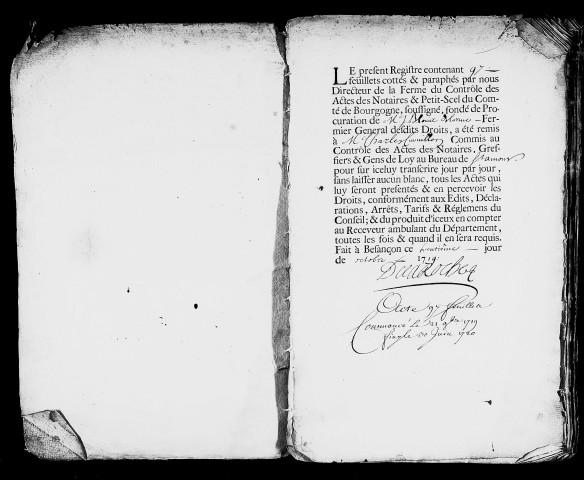 LE present Registre contenant 97
feuillets cottés & paraphés par nous
Directeur de la Ferme du Contrôle des
Actes des Notaires & Petit-Scel du Com-
té de Bourgogne, soussigné, fondé de Pro-
curation de Mr - Fer-
mier General desdits Droits, a été remis
à Mr Charles Commis au
Contrôle des Actes des Notaires, Gref-
fiers & Gens de Loy au Bureau de
pour sur iceluy transcrire jour par jour,
sans laisser aucun blanc, tous les Actes qui
luy seront présentés & en percevoir les
Droits, conformément aux Edits, Décla-
rations, Arrêts, Tarifs & Réglemens du
Conseil; & du produit d'iceux en compter
au Receveur ambulant du Département,
toutes les fois & quand il en sera requis.
Fait à Besançon ce jour
de octobre 1719
97 feuillets
Commencé le 1719
juin 1720